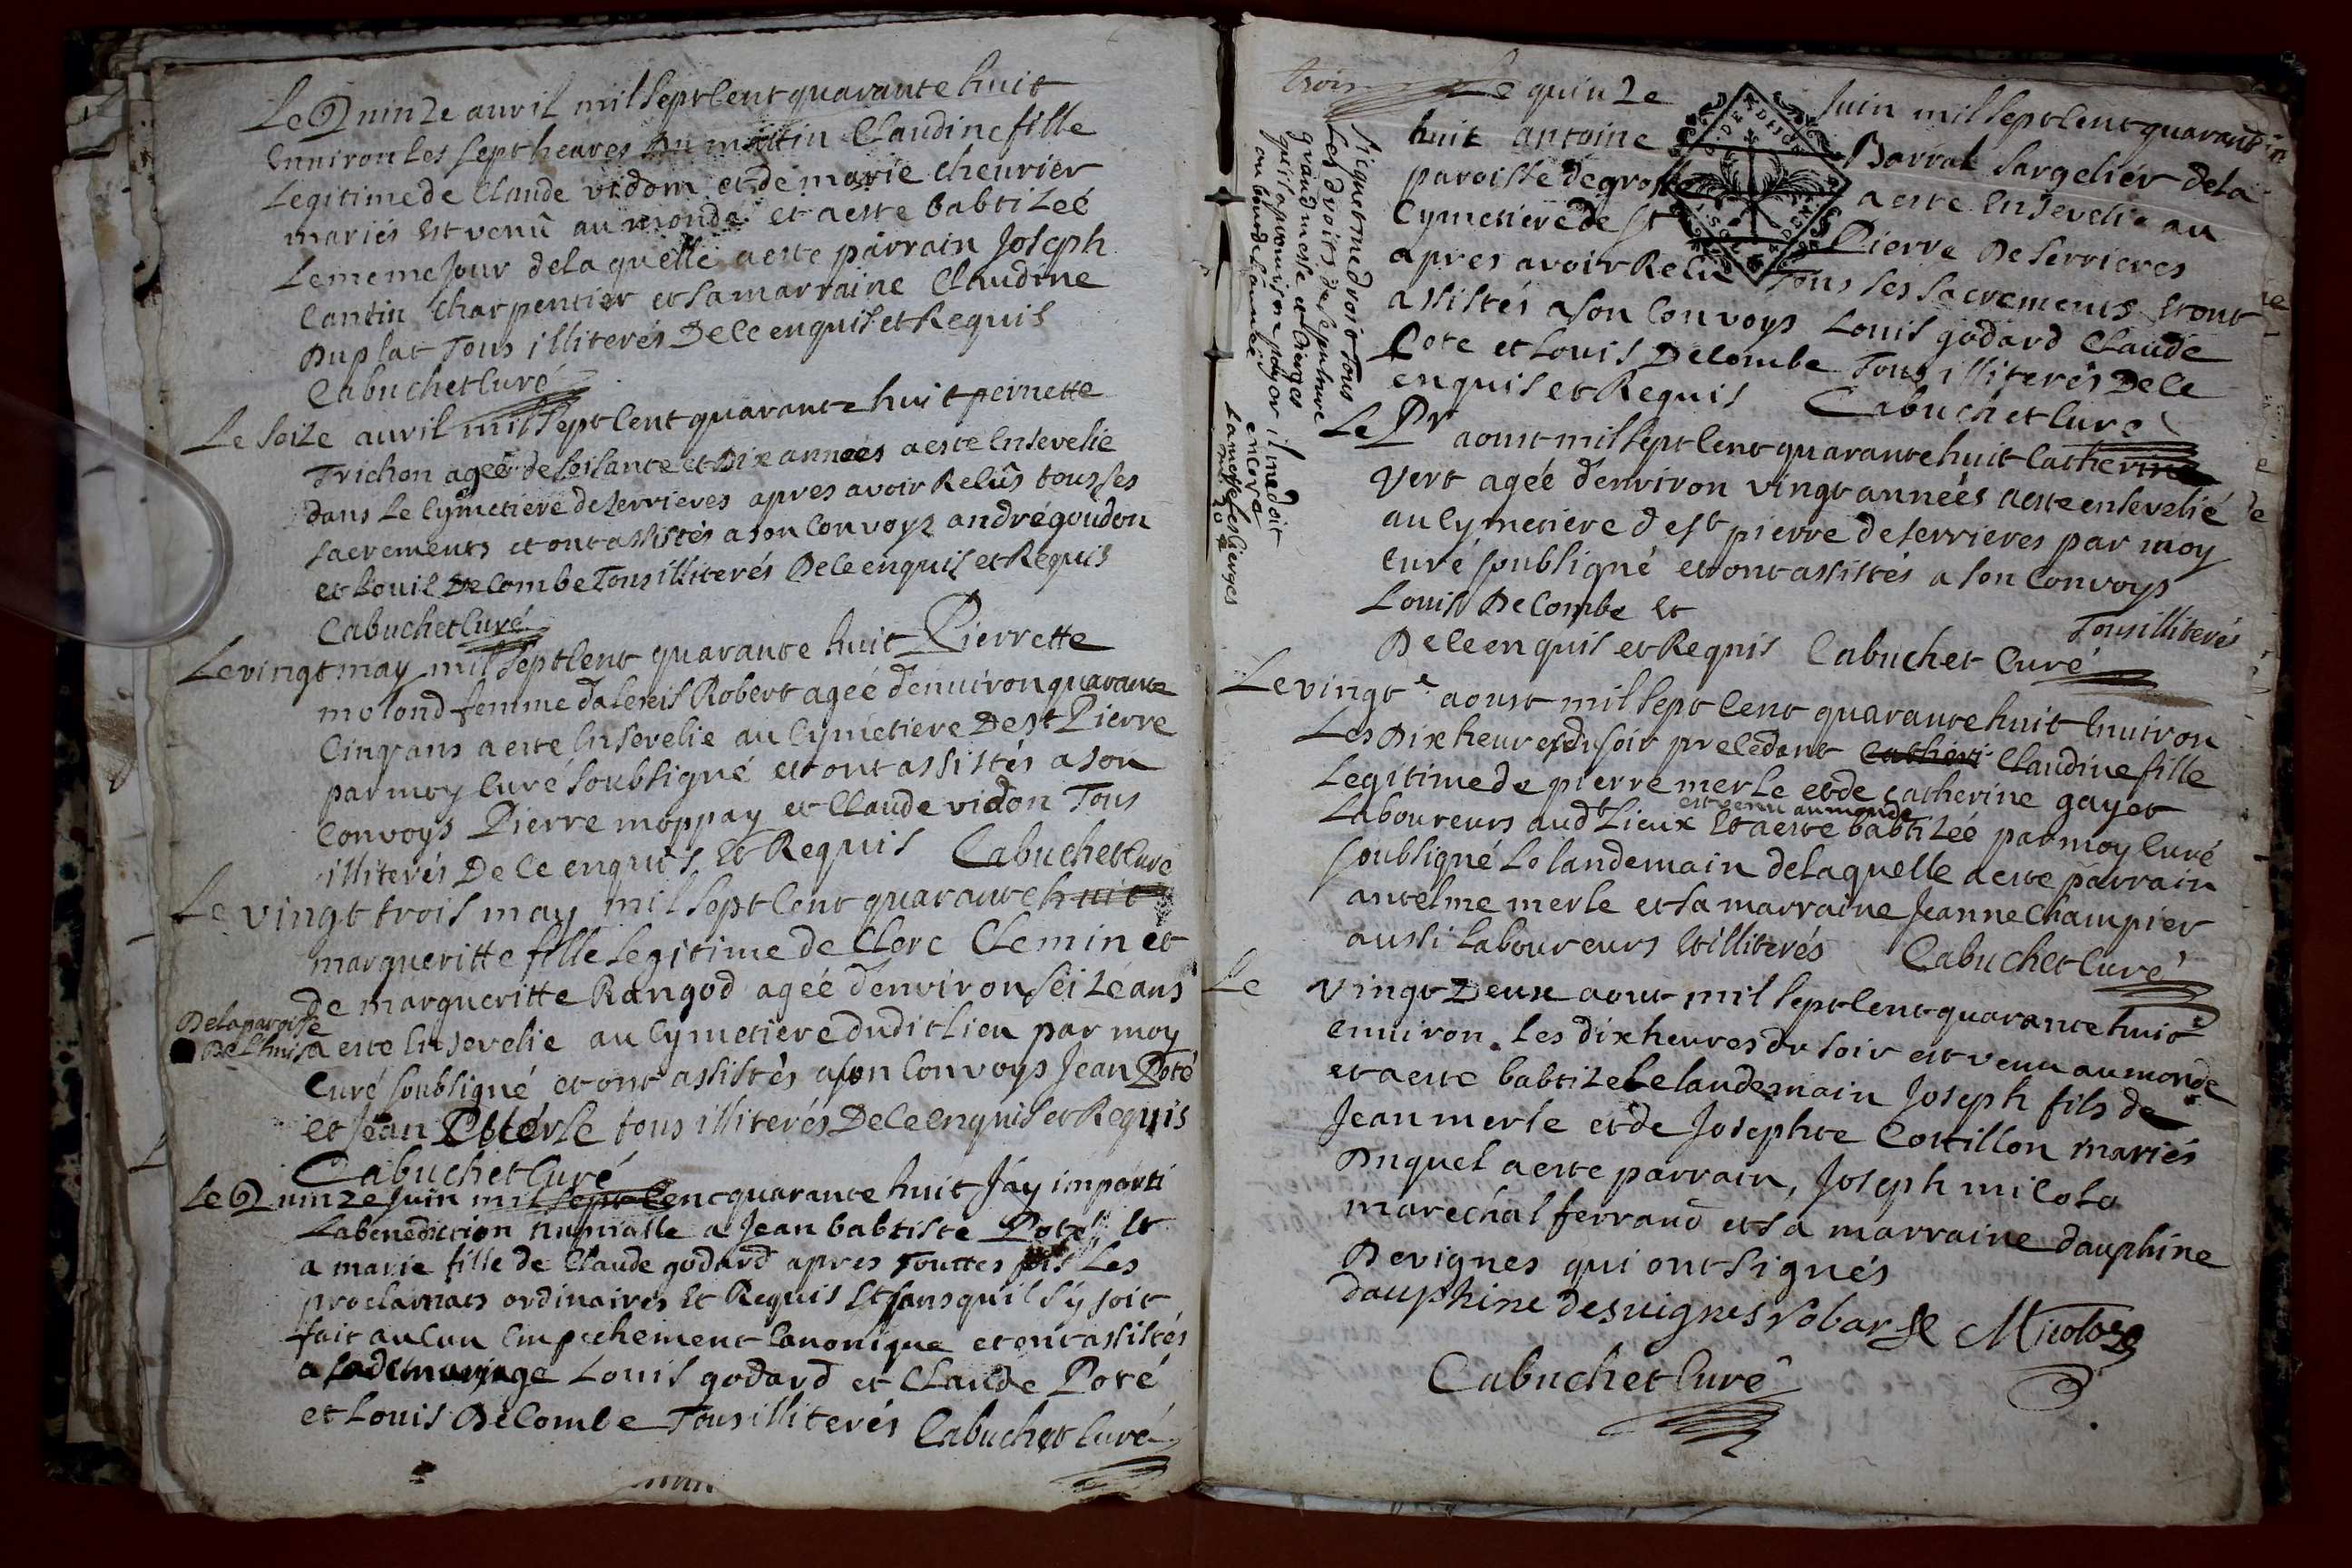 Le Quinze auril mil sept Cent quarante huit
Enuiron les sept heures du mattin Claudine fille
Legitime de Claude vidom et de marie cheurier
mariés est venû au monde et a este babtizeé
Le meme Jour de laquelle a este parrain Joseph
Cantin charpentier et sa marraine Claudine
Duplat Tous illiterés De Ce enquis et Requis
Cabuchet Curé
Le seize auril mil sept Cent quarante huit pernette
Trichon ageé de soisante et Dix anneés a este Ensevelie
dans le Cymetiere de serrieres apres avoir Relûs tous ses
sacrements et ont assistés a son Convoys andré goudon
et Louis De Combe Tous illiterés De Ce enquis et Requis
Cabuchet Curé
Le vingt may mil sept Cent quarante huit Pierrette
molond femme dalexis Robert ageé denuiron quarante
Cinq ans a este Ensevelie au Cymetiere De st Pierre
par moy Curé soubsigné et ont assistés a son
Convoys Pierre moppay et Claude vidon Tous
illiterés De Ce enquis et Requis Cabuchet Curé
Le vingt trois may mil sept Cent quarante huit
margueritte fille Legitime de Clere Clemin et
de margueritte Rangod ageé denviron seize ans
De la paroisse
De Lhuis a este Ensevelie au Cymetiere dudit Lieu par moy
Curé soubsigné et ont assistés a son Convoys Jean Poté
et Jean Merle tous illiterés De Ce enquis et Requis
Cabuchet Curé
Le Quinze Juin mil sept Cent quarante huit Jáy imparti
La benediction nuptialle a Jean babtiste Poté et
a marie fille de Claude godard apres Touttes les
proclamats ordinaires et Requis et sans quil sy soit
fait aucun Empechement Canonique et ont assistés
a sad mariage Louis godard et Claude Poté
et Louis De Combe Tous illiterés Cabuchet Curé
trois Le quinze Juin mil sept Cent quarante
huit antoine Barral sargetier de la
paroisse de gros a este Ensevelie au
Cymetiere de st Pierre De serrieres
apres avoir Relu Tous ses sacrements et ont
assistés a son Convoys Louis godard Claude
Pote et Louis De Combe Tous illiterés De Ce
enquis et Requis Cabuchet Curé
Lequel me droit tous
Les droits de sepulture
grand messe et Cierges
quil a promis me payer
au bout de lannée
il me doit
encore
La messe les Cierges
Le Pr aoust mil sept Cent quarante huit Catherine
Vert agée denviron vingt anneés a este enseveliê
au Cymetiere de st pierre de serrieres par moy
Curé soubsigné et ont assistés a son Convoys
Louis De Combe et
Tous illiterés
De Ce enquis et Requis Cabuchet Curé
Le vingte aoust mil sept Cent quarante huit Enuiron
Les Dix heures du soir precedant Catheri Claudine fille
Legitime de pierre merle et de catherine gayet
est venu au monde
Laboureurs audt Lieux Et a este babtizeé par moy Curé
soubsigné Le landemain de laquelle a este parrain
antelme merle et sa marraine Jeanne Champier
aussi Laboureurs et illiterés Cabuchet Curé
Le vingt Deux aout mil sept Cent quarante huit
enuiron les dix heures du soir est venu au monde
et a este babtize Le landemain Joseph fils de
Jean merle et de Josephte Cottillon mariés
Duquel a este parrain, Joseph micolo
marechal ferrand et sa marraine dauphine
Devignes qui ont signés
dauphine desuignes Micoloz
Cabuchet Curé